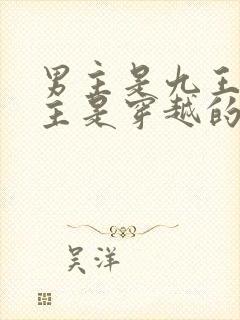 男主是九王
主是穿越的
吴洋